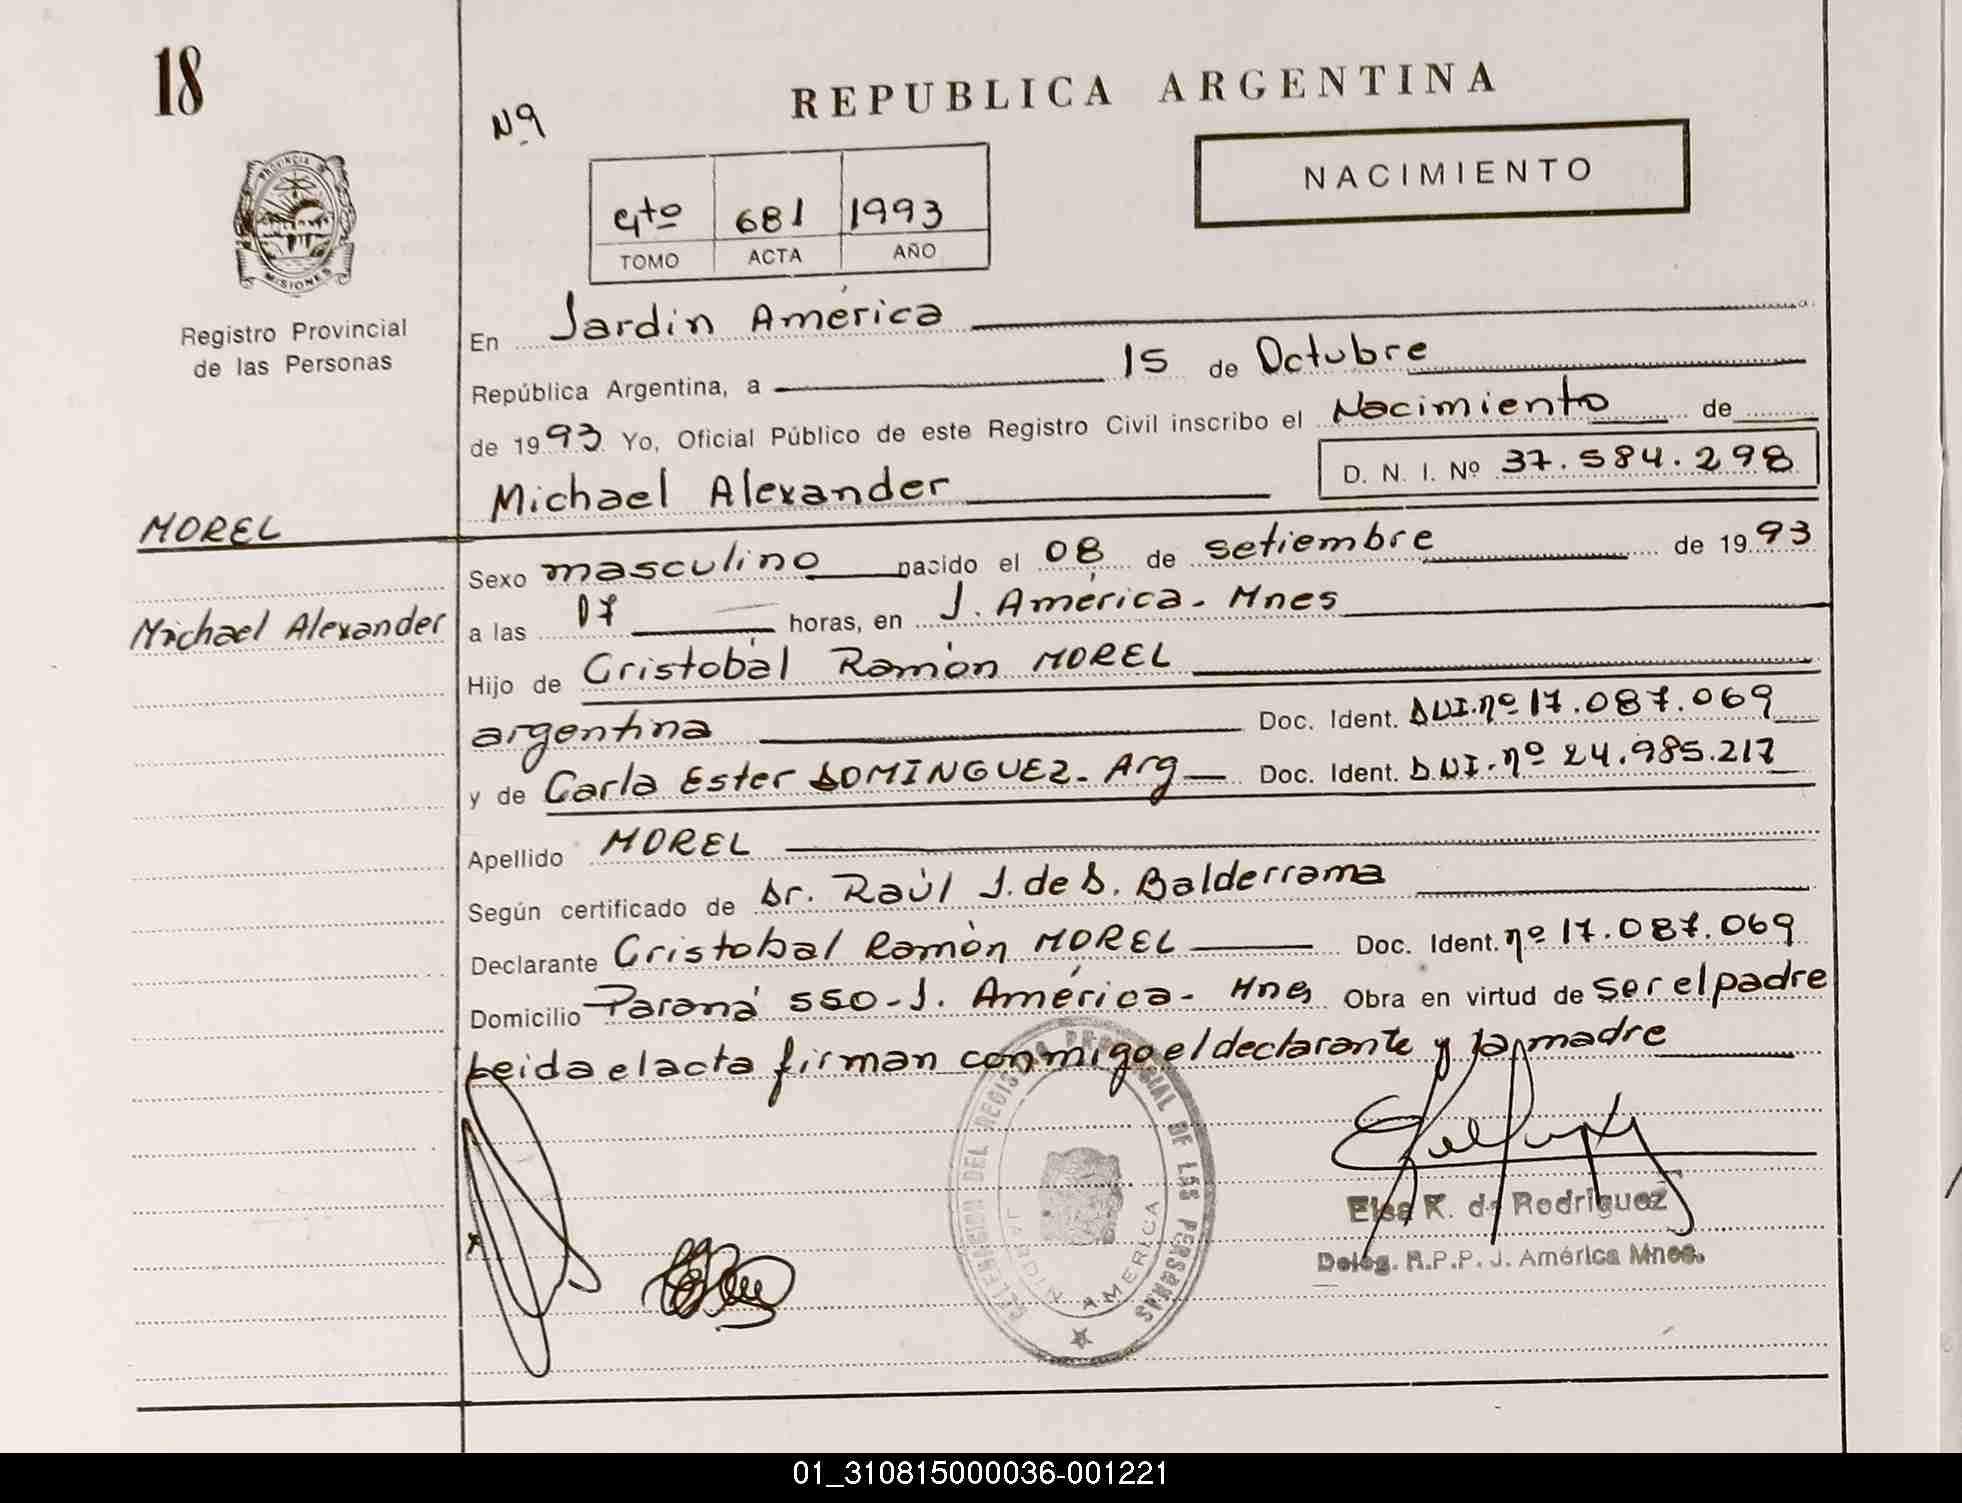 18
REPUBLICA ARGENTINA
Nº
NACIMIENTO
4to 681 1993
TOMO ACTA AÑO
PROVINCIA DE
MISIONES
Registro Provincial
de las Personas
En Jardin América
República Argentina, a 15 de Octubre
de 1993 Yo, Oficial Público de este Registro Civil inscribo el Nacimiento de
Michael Alexander D. N. I. Nº 37.584.298
MOREL
Michael Alexander
Sexo masculino nacido el 08 de setiembre de 1993
a las 07 horas, en J. América. Mnes
Hijo de Cristobal Ramón MOREL
argentina Doc. Ident. DNI.nº 17.087.069
y de Carla Ester DOMINGUEZ. Arg Doc. Ident. DNI.nº 24.985.217
Apellido MOREL
Según certificado de Dr. Raúl J. de D. Balderrama
Declarante Cristobal Ramón MOREL Doc. Ident. nº 17.087.069
Domicilio Paraná 550-J. América- Mnes Obra en virtud de ser el padre
Leida el acta firman conmigo el declarante y la madre
DELEGACION DEL REGISTRO PROVINCIAL DE LAS PERSONAS
JARDIN AMERICA
Elsa K. de Rodriguez
Deleg. R.P.P. J. América Mnes.
01_310815000036-001221